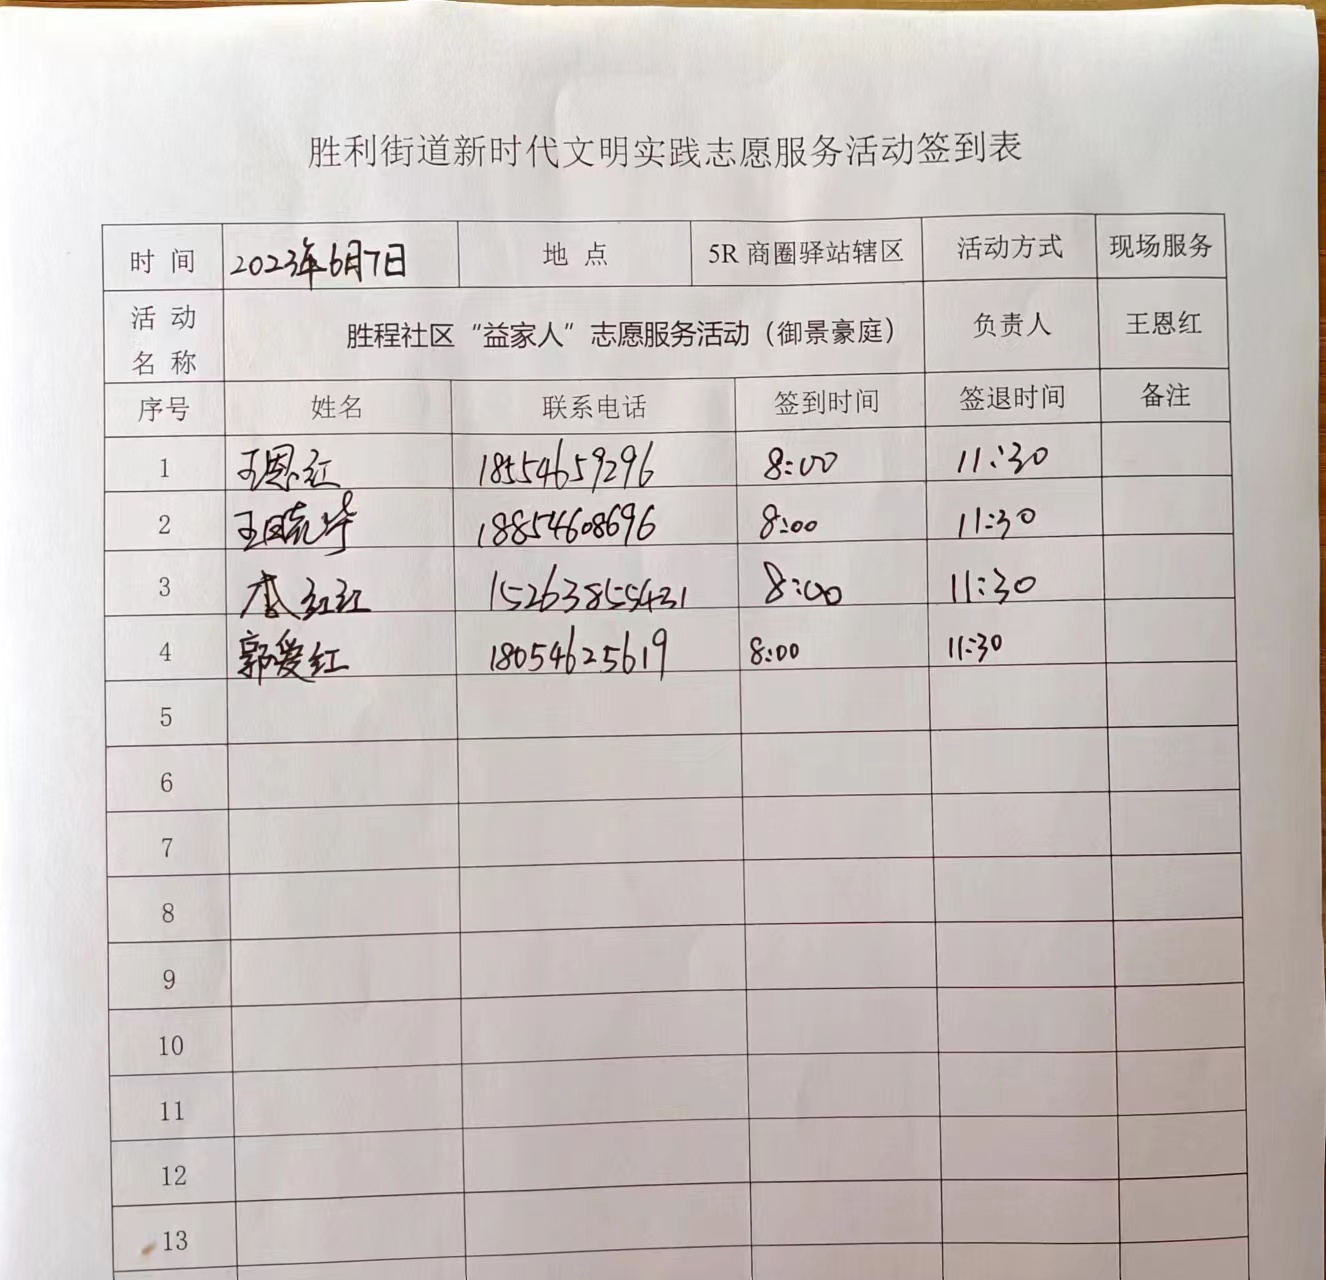 胜利街道新时代文明实践志愿服务活动签到表
时 间 2023年6月7日 地 点 5R 商圈驿站辖区 活动方式 现场服务
活 动
名 称 胜程社区“益家人”志愿服务活动（御景豪庭） 负责人 王恩红
序号 姓名 联系电话 签到时间 签退时间 备注
1 王恩红 18554659296 8:00 11:30
2 王晓华 18854608696 8:00 11:30
3 李红红 15263855431 8:00 11:30
4 郭爱红 18054625619 8:00 11:30
5
6
7
8
9
10
11
12
13